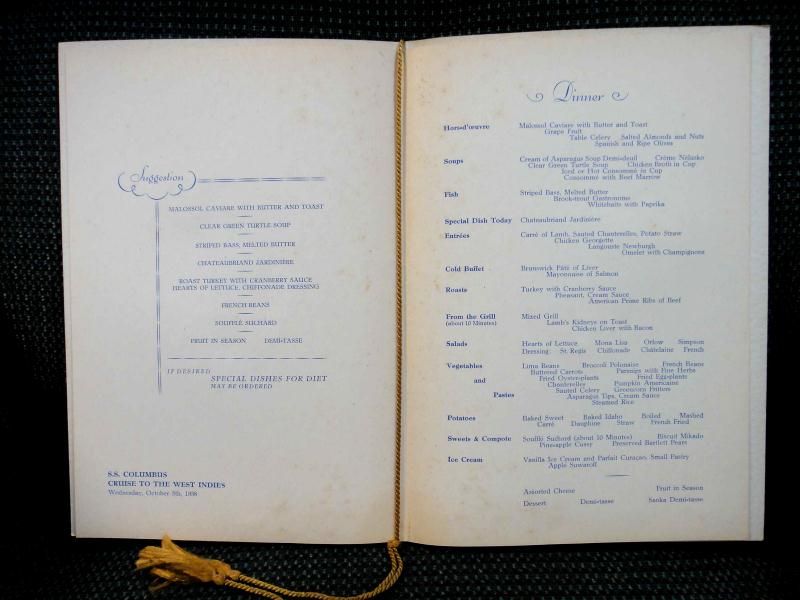 Suggestion
MALOSSOL CAVIARE WITH BUTTER AND TOAST
CLEAR GREEN TURTLE SOUP
STRIPED BASS, MELTED BUTTER
CHATEAUBRIAND JARDINIÈRE
ROAST TURKEY WITH CRANBERRY SAUCE
HEARTS OF LETTUCE, CHIFFONADE DRESSING
FRENCH BEANS
SOUFFLÉ SUCHARD
FRUIT IN SEASON DEMI-TASSE
IF DESIRED
SPECIAL DISHES FOR DIET
MAY BE ORDERED
S.S. COLUMBUS
CRUISE TO THE WEST INDIES
Wednesday, October 5th, 1938
Dinner
Hors-d'œuvre Malossol Caviare with Butter and Toast
Grape Fruit
Table Celery Salted Almonds and Nuts
Spanish and Ripe Olives
Soups Cream of Asparagus Soup Demi-deuil Crème Nélusko
Clear Green Turtle Soup Chicken Broth in Cup
Iced or Hot Consommé in Cup
Consommé with Beef Marrow
Fish Striped Bass, Melted Butter
Brook-trout Gastronome
Whitebaits with Paprika
Special Dish Today Chateaubriand Jardinière
Entrées Carré of Lamb, Sautéd Chanterelles, Potato Straw
Chicken Georgette
Langouste Newburgh
Omelet with Champignons
Cold Buffet Brunswick Pâté of Liver
Mayonnaise of Salmon
Roasts Turkey with Cranberry Sauce
Pheasant, Cream Sauce
American Prime Ribs of Beef
From the Grill Mixed Grill
(about 10 Minutes) Lamb's Kidneys on Toast
Chicken Liver with Bacon
Salads Hearts of Lettuce Mona Lisa Orlow Simpson
Dressing: St. Regis Chiffonade Châtelaine French
Vegetables Lima Beans Broccoli Polonaise French Beans
Buttered Carrots Parsnips with Fine Herbs
Fried Oyster-plants Fried Egg-plants
and Chanterelles Pumpkin Americaine
Sautéd Celery Greencorn Fritters
Pastes Asparagus Tips, Cream Sauce
Steamed Rice
Potatoes Baked Sweet Baked Idaho Boiled Mashed
Carré Dauphine Straw French Fried
Sweets & Compote Soufflé Suchard (about 10 Minutes) Biscuit Mikado
Pineapple Cussy Preserved Bartlett Pears
Ice Cream Vanilla Ice Cream and Parfait Curaçao, Small Pastry
Apple Suwaroff
Assorted Cheese Fruit in Season
Dessert Demi-tasse Sanka Demi-tasse